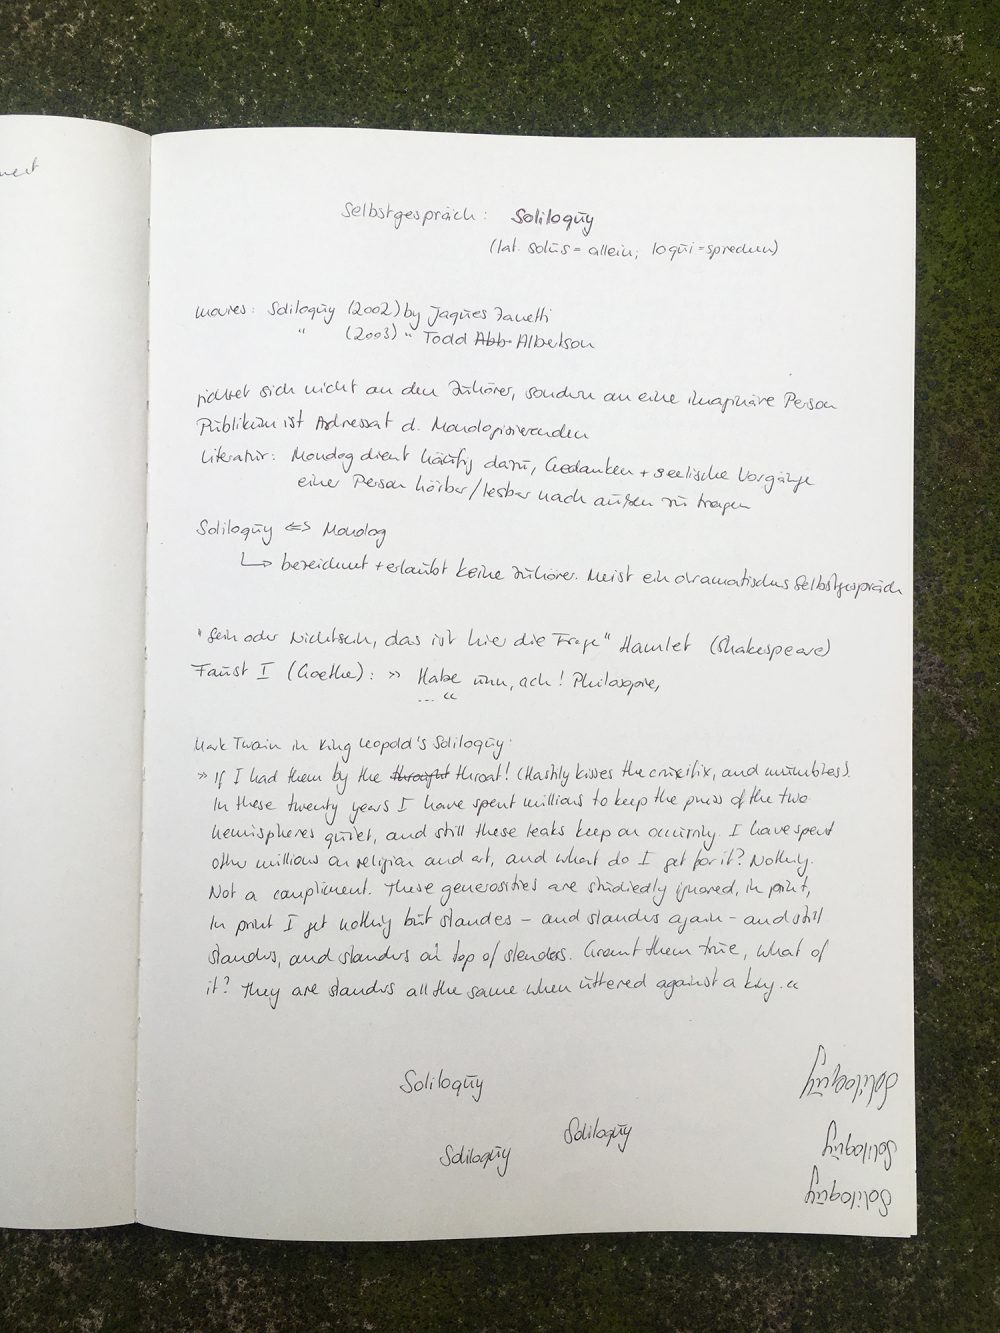 ment
Selbstgespräch: Soliloquy
(lat. solus = allein; loqui = sprechen)
movies: Soliloquy (2002) by Jaques Zanetti
" (2003) " Todd Abb Albertson
richtet sich nicht an den Zuhörer, sondern an eine imaginäre Person
Publikum ist Adressat d. Monologisierenden
Literatur: Monolog dient häufig dazu, Gedanken + seelische Vorgänge
einer Person hörbar/lesbar nach außen zu tragen
Soliloquy <=> Monolog
↳ bezeichnet + erlaubt keine Zuhörer. Meist ein dramatisches Selbstgespräch
"Sein oder Nichtsein, das ist hier die Frage" Hamlet (Shakespeare)
Faust I (Goethe): » Habe nun, ach! Philosopie,
... «
Mark Twain in King Leopold's Soliloquy:
» If I had them by the throught throat! (Hastily kisses the crucifix, and mumbles).
In these twenty years I have spent millions to keep the press of the two
hemispheres quiet, and still these leaks keep on occurring. I have spent
other millions on religion and art, and what do I get for it? Nothing.
Not a compliment. These generosities are studiedly ignored, in print,
In print I get nothing but slandes – and slanders again – and still
slanders, and slanders on top of slanders. Grant them true, what of
it? They are slanders all the same when uttered against a king. «
Soliloquy
Soliloquy
Soliloquy
Soliloquy
Soliloquy
Soliloquy